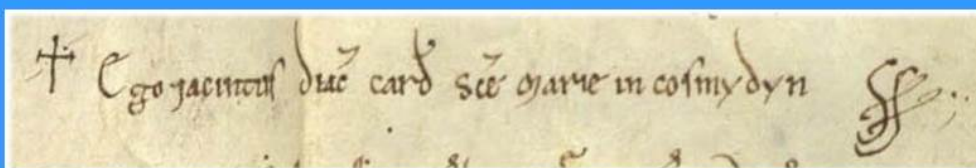 † Ego jacintus diac̄ card̄ Sc̄e Marie in cosmydyn SS